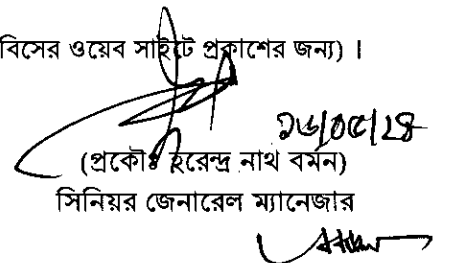 বিসের ওয়েব সাইটে প্রকাশের জন্য) ।
১৬/০৫/২৪
(প্রকৌঃ হরেন্দ্র নাথ বর্মন)
সিনিয়র জেনারেল ম্যানেজার